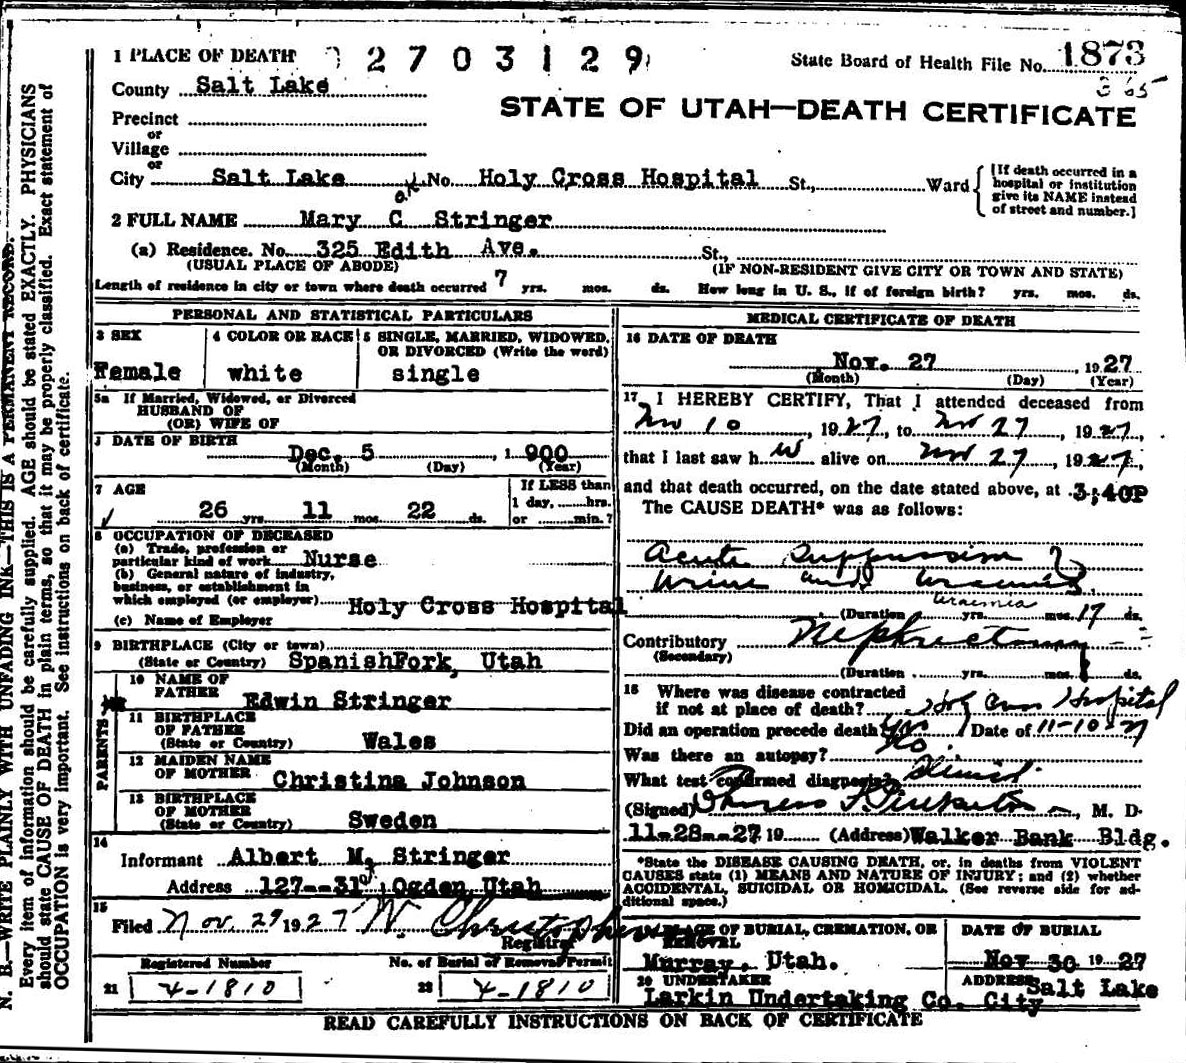 1 PLACE OF DEATH 2703129
State Board of Health File No. 1873
365
County Salt Lake
STATE OF UTAH—DEATH CERTIFICATE
Precinct
or
Village
or
City Salt Lake No. Holy Cross Hospital St., Ward
[If death occurred in a hospital or institution give its NAME instead of street and number.]
2 FULL NAME Mary C Stringer
(a) Residence. No. 325 Edith Ave. St.,
(USUAL PLACE OF ABODE) (IF NON-RESIDENT GIVE CITY OR TOWN AND STATE)
Length of residence in city or town where death occurred 7 yrs. mos. ds. How long in U. S., if of foreign birth? yrs. mos. ds.
PERSONAL AND STATISTICAL PARTICULARS
3 SEX 4 COLOR OR RACE 5 SINGLE, MARRIED, WIDOWED,
OR DIVORCED (Write the word)
Female white single
5a If Married, Widowed, or Divorced
HUSBAND OF
(OR) WIFE OF
DATE OF BIRTH
Dec. 5 , 1 900
(Month) (Day) (Year)
7 AGE If LESS than
1 day,......hrs.
or ......min.?
26 yrs. 11 mos. 22 ds.
8 OCCUPATION OF DECEASED
(a) Trade, profession or
particular kind of work Nurse
(b) General nature of industry,
business, or establishment in
which employed (or employer) Holy Cross Hospital
(c) Name of Employer
9 BIRTHPLACE (City or town)
(State or Country) SpanishFork, Utah
PARENTS
10 NAME OF
FATHER Edwin Stringer
11 BIRTHPLACE
OF FATHER
(State or Country) Wales
12 MAIDEN NAME
OF MOTHER Christina Johnson
13 BIRTHPLACE
OF MOTHER
(State or Country) Sweden
14
Informant Albert M. Stringer
Address 127--31st Ogden Utah
15
Filed Nov. 29 1927 W. Christopherson
Registrar
Registered Number No. of Burial or Removal Permit
21 4-1810 22 4-1810
MEDICAL CERTIFICATE OF DEATH
16 DATE OF DEATH
Nov. 27 , 1927
(Month) (Day) (Year)
17 I HEREBY CERTIFY, That I attended deceased from
Nov 10 , 1927, to Nov 27 , 1927,
that I last saw h alive on Nov 27 , 1927,
and that death occurred, on the date stated above, at 3;40P
The CAUSE DEATH* was as follows:
Acute Suppression of
Urine and Uraemia
Uraemia
(Duration yrs. mos. 17 ds.
Contributory Nephrectomy
(Secondary)
(Duration yrs. mos. ds.
18 Where was disease contracted
if not at place of death? Holy Cross Hospital
Did an operation precede death? Yes Date of 11-10-27
Was there an autopsy? No
What test confirmed diagnosis? Clinical
(Signed) , M. D.
11-28--27 19 (Address) Walker Bank Bldg.
*State the DISEASE CAUSING DEATH, or, in deaths from VIOLENT
CAUSES state (1) MEANS AND NATURE OF INJURY; and (2) whether
ACCIDENTAL, SUICIDAL OR HOMICIDAL. (See reverse side for ad-
ditional space.)
PLACE OF BURIAL, CREMATION, OR
REMOVAL DATE OF BURIAL
Murray, Utah. Nov 30 19 27
20 UNDERTAKER ADDRESS Salt Lake
Larkin Undertaking Co. City
READ CAREFULLY INSTRUCTIONS ON BACK OF CERTIFICATE
N. B.—WRITE PLAINLY WITH UNFADING INK—THIS IS A PERMANENT RECORD.
Every item of information should be carefully supplied. AGE should be stated EXACTLY. PHYSICIANS
should state CAUSE OF DEATH in plain terms, so that it may be properly classified. Exact statement of
OCCUPATION is very important. See instructions on back of certificate.